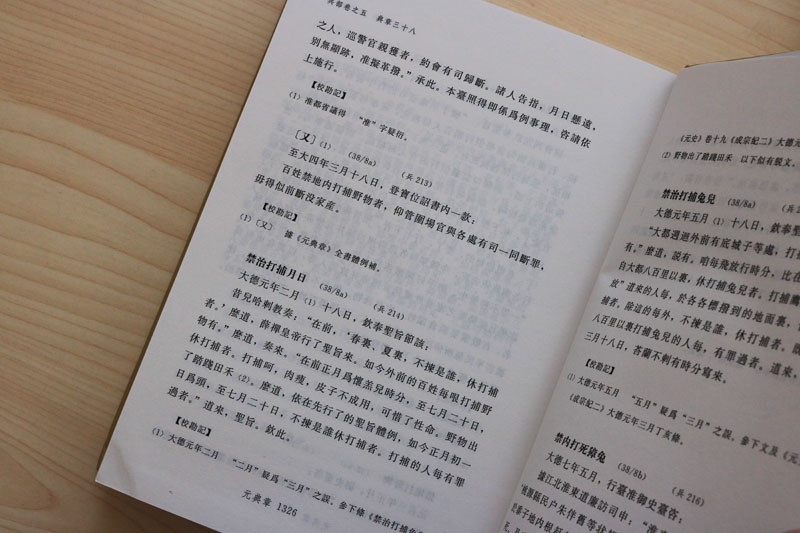 兵部卷之五　典章三十八
之人，巡警官親獲者，約會有司歸斷。諸人告指，月日懸遠，
別無顯跡，准擬革撥。”承此。本臺照得即係爲例事理，咨請依
上施行。
【校勘記】
(1) 准都省議得　“准”字疑衍。
〔又〕(1)　(38/8a)　(兵 213)
至大四年三月十八日，登寶位詔書内一款：
百姓禁地内打捕野物者，仰管圍場官與各處有司一同斷罪，
毋得似前斷没家産。
【校勘記】
(1)〔又〕　據《元典章》全書體例補。
禁治打捕月日　(38/8a)　(兵 214)
大德元年二月 (1) 十八日，欽奉聖旨節該：
昔兒哈剌教奏：“在前，‘春裏、夏裏，不揀是誰，休打捕
者。’麽道，薛禪皇帝行了聖旨來。如今外前的百姓每哏打捕野
物有。”麽道，奏來。“在前正月爲懷羔兒時分，至七月二十日，
休打捕者。打捕呵，肉瘦，皮子不成用，可惜了性命。野物出
了踏踐田禾 (2)。麽道，依在先行了的聖旨體例，如今正月初一
日爲頭，至七月二十日，不揀是誰休打捕者。打捕的人每有罪
過者。”道來，聖旨。欽此。
【校勘記】
(1) 大德元年二月　“二月”疑爲“三月”之誤，參下條《禁治打捕兔
元典章 1326
《元史》卷十九《成宗紀二》大德元
(2) 野物出了踏踐田禾　以下似有脱文。
禁治打捕兔兒　(38/8a)　(兵 215)
大德元年五月 (1) 十八日，欽奉聖
“大都週迴外前有底城子等處，打捕
有。”麽道，説有。咱每飛放行時分，比在
自大都八百里以裏，休打捕兔兒者。打捕
放”道來的人每，於各各標撥到的地面裏，
捕者。除這的每外，不揀是誰，休打捕者。
八百里以裏打捕兔兒的人每，有罪過者。道來，
三月十八日，苔蘭不剌有時分寫來。
【校勘記】
(1) 大德元年五月　“五月”疑爲“三月”之誤，參下文及《元
《成宗紀二》大德元年三月丁亥條。
禁内打死獐兔　(38/8b)　(兵 216)
大德七年五月，行臺准御史臺咨：
據江北淮東道廉訪司申：“淮